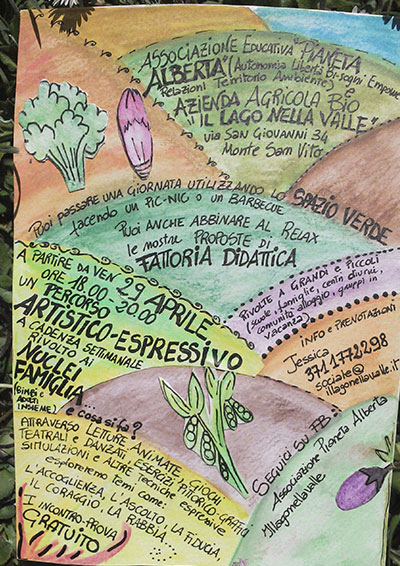 ASSOCIAZIONE EDUCATIVA "PIANETA
ALBERTA" (Autonomia Libertà Bisogni Empower
Relazioni Territorio Ambiente) e
AZIENDA AGRICOLA BIO
"IL LAGO NELLA VALLE"
via SAN GIOVANNI 34
MONTE SAN VITO
PUOI PASSARE UNA GIORNATA UTILIZZANDO LO SPAZIO VERDE
facendo UN PIC-NIC O UN BARBECUE
PUOI ANCHE ABBINARE AL RELAX
le nostre PROPOSTE DI
FATTORIA DIDATTICA
RIVOLTE A GRANDI E PICCOLI
(scuole, famiglie, centri diurni,
comunità alloggio, gruppi in
vacanza)
A PARTIRE DA VEN 29 APRILE
ORE 18.00-20.00
UN PERCORSO
ARTISTICO-ESPRESSIVO
A CADENZA SETTIMANALE
RIVOLTO AI
NUCLEI
FAMIGLIA
(BIMBI E
ADULTI
INSIEME)
INFO E PRENOTAZIONI
Jessica
371 1772298
sociale@
illagonellavalle.it
e cosa si fa?
ATTRAVERSO LETTURE ANIMATE, GIOCHI
TEATRALI E DANZATI, ESERCIZI PITTORICO-GRAFICI
SIMULAZIONI E ALTRE TECNICHE espressive
esploreremo temi come:
L'ACCOGLIENZA, L'ASCOLTO, LA FIDUCIA,
IL CORAGGIO, LA RABBIA.
I INCONTRO-PROVA
GRATUITO
SEGUICI SU FB:
Associazione Pianeta Alberta
Illagonellavalle